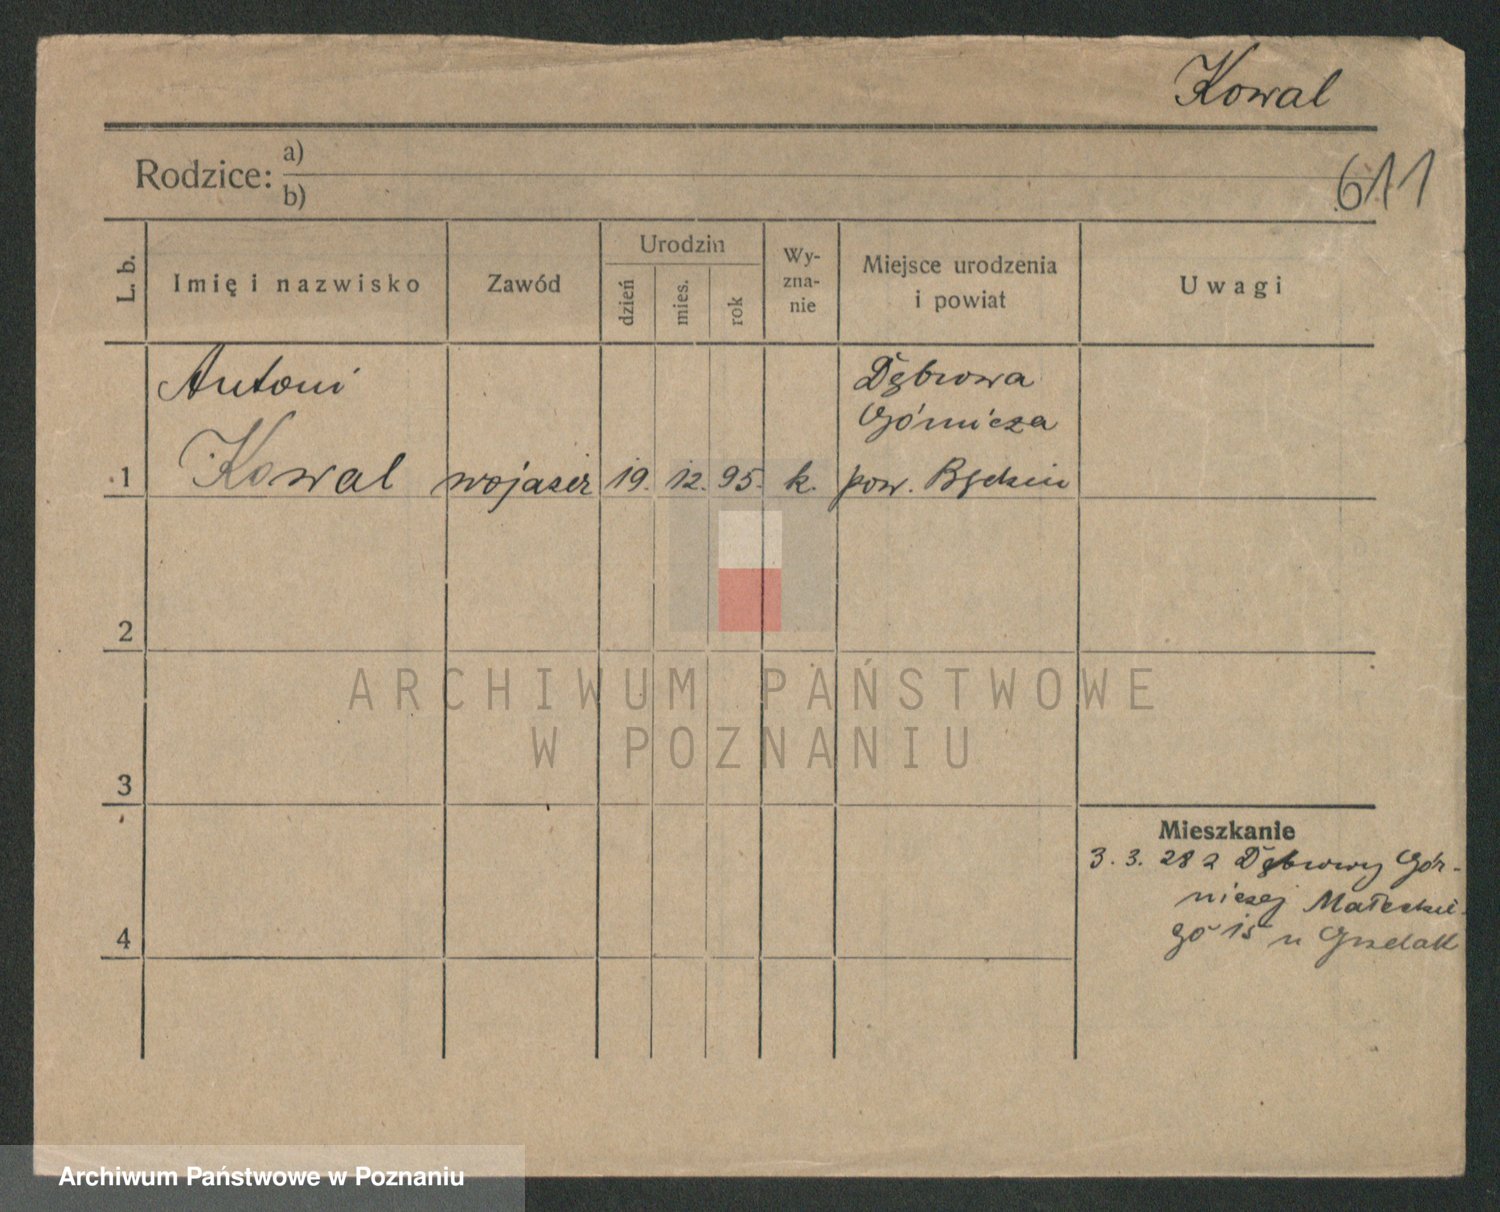 Kowal
611
Rodzice: a)
b)
L. b.
Imię i nazwisko
Zawód
Urodzin
dzień
mies.
rok
Wy-
zna-
nie
Miejsce urodzenia
i powiat
Uwagi
Antoni
Kowal
1
19. 12. 95. k.
Dąbrowa
Górnicza
pow. Będzin
2
3
4
Mieszkanie
3. 3. 28 z Dąbrowy Gór-
niczej Małeckie-
go 15 u
ARCHIWUM PAŃSTWOWE
W POZNANIU
Archiwum Państwowe w Poznaniu